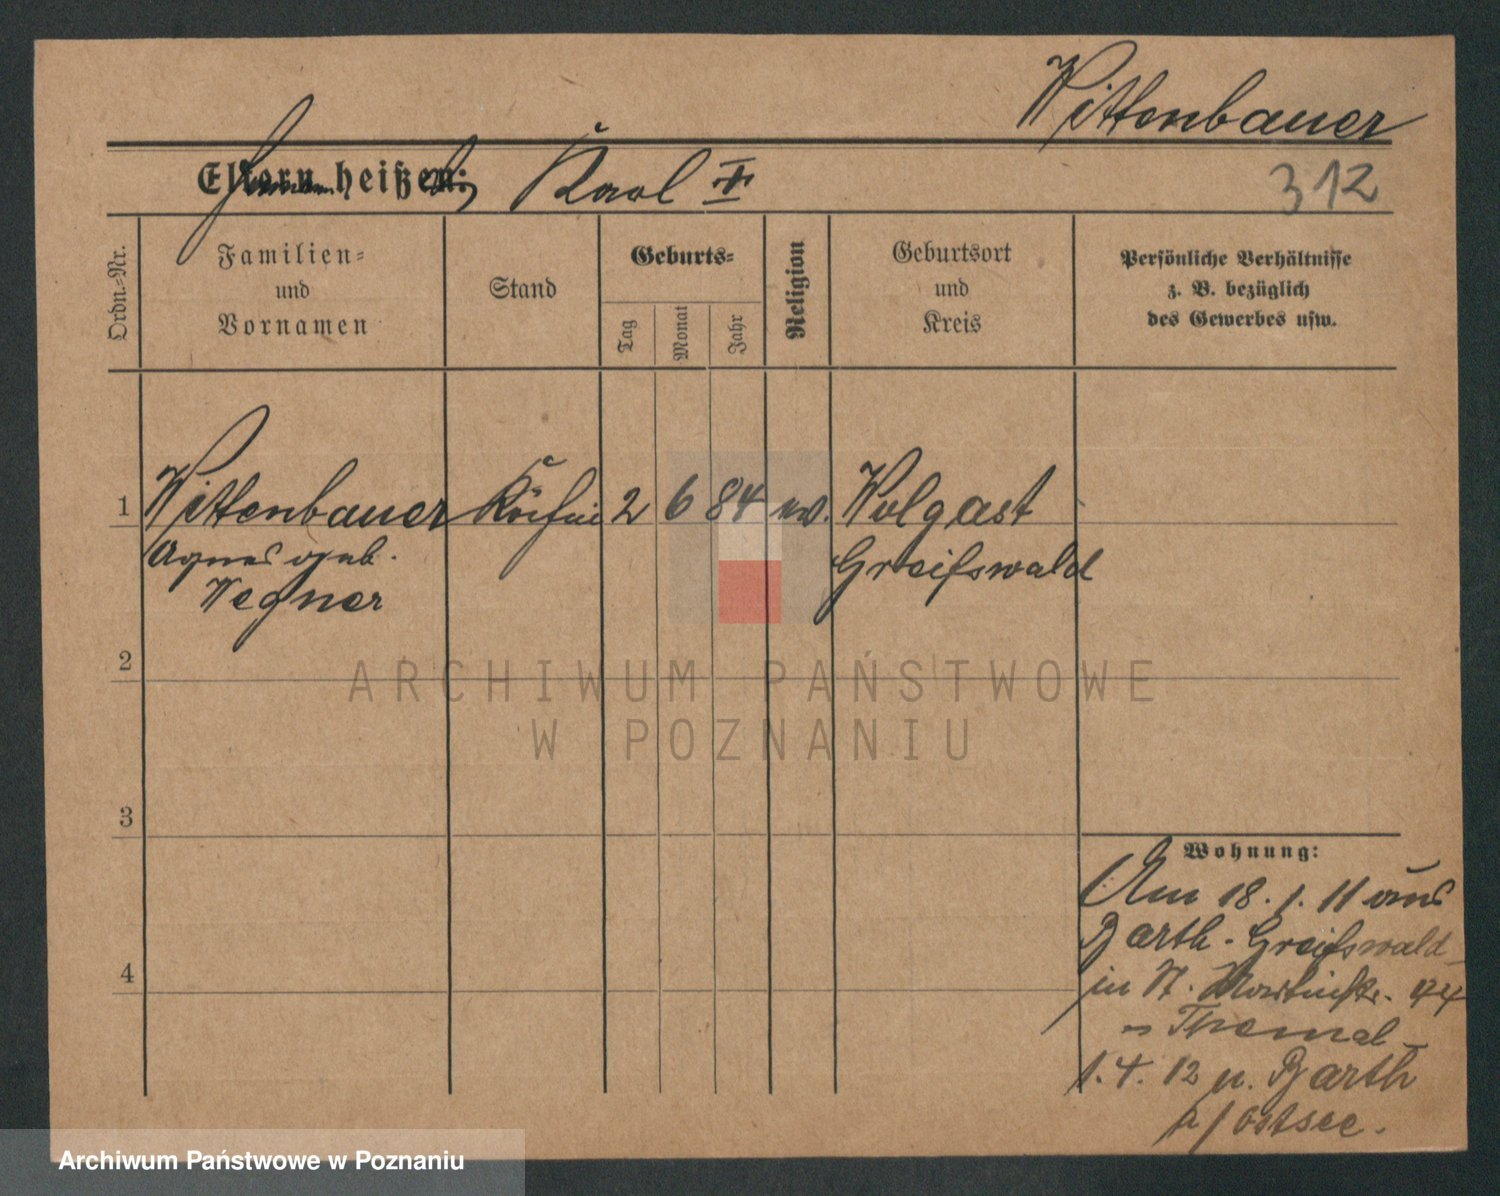 Wittenbauer
Eltern heißen: Karl I
312
Ordn.-Nr.
Familien-
und
Vornamen
Stand
Geburts-
Tag
Monat
Jahr
Religion
Geburtsort
und
Kreis
Persönliche Verhältnisse
z. B. bezüglich
des Gewerbes usw.
1 Wittenbauer 2 6 84 ev. Wolgast
Agnes geb. Greifswald
Wegner
2
3
4
Wohnung:
Am 18. 1. 11 aus
Barth - Greifswald
in St. Martinstr. 44
1. 4. 12 n. Barth
a/ Ostsee.
ARCHIWUM PAŃSTWOWE
W POZNANIU
Archiwum Państwowe w Poznaniu